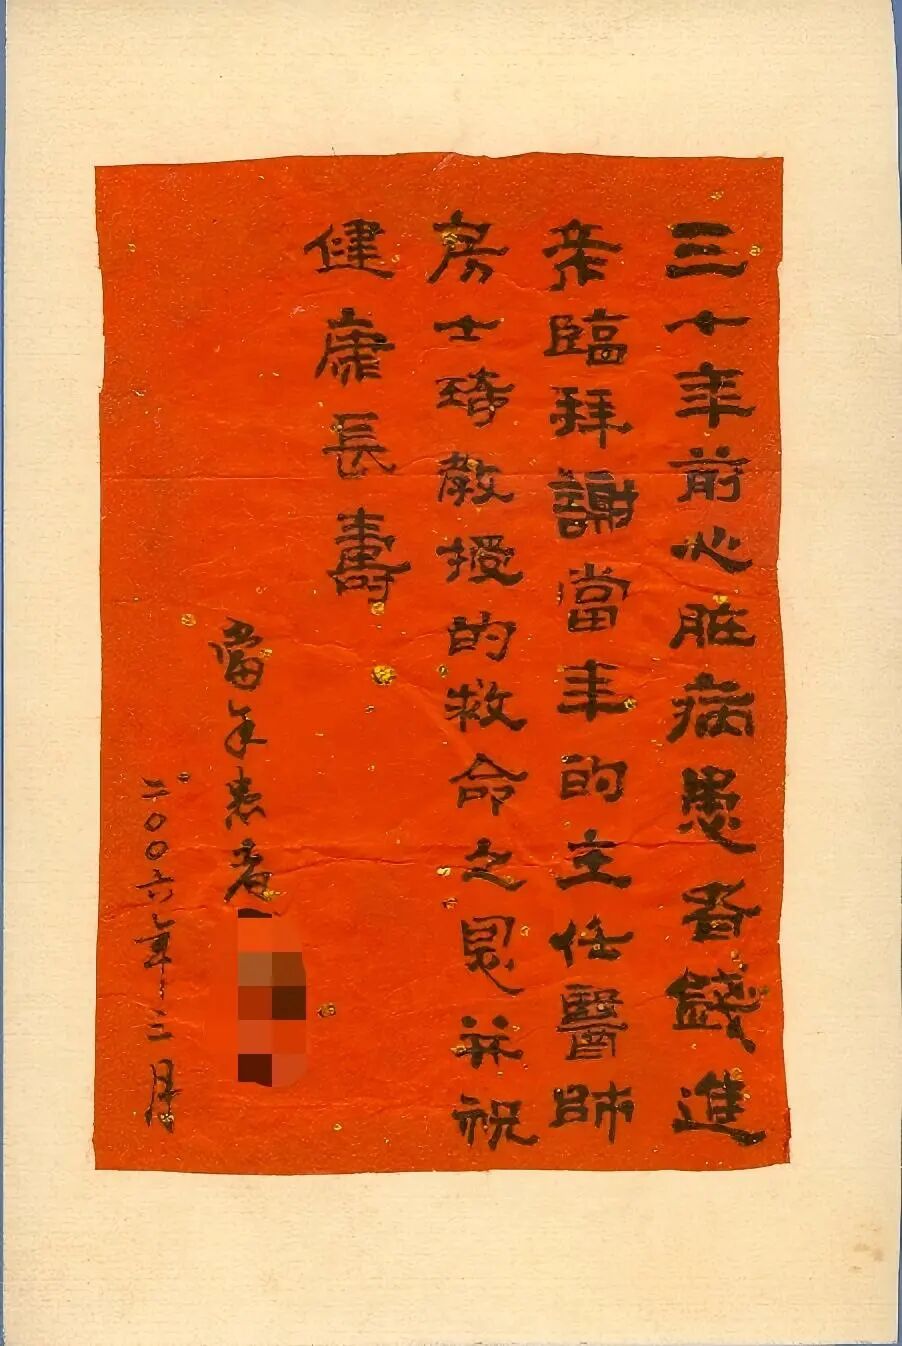 三十年前心脏病患者錢進
來臨拜謝當年的主任醫師
房士琦教授的救命之恩并祝
健康長壽
當年患者
二〇〇六年三月